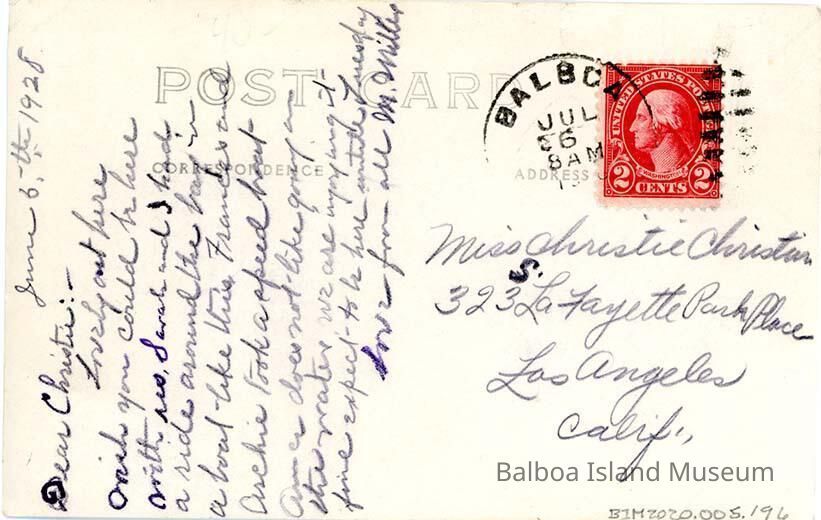 June 6th 1928
Dear Christie:-
Lovely out here
wish you could be here
with us, Sarah and I had
a ride around the bay in
a boat like this. Frances and
Archie took a speed boat
Ama does not like going on
the water we are enjoying it
fine expect to be here until Tuesday
Love from all M. Miller
POST CARD
CORRESPONDENCE
ADDRESS O
BALBOA
JUL
6
8AM
UNITED STATES POSTAGE
WASHINGTON
2 CENTS 2
Miss Christie Christian
S.
323 LaFayette Park Place
Los Angeles
Calif.,
Balboa Island Museum
BIM2020.005.196